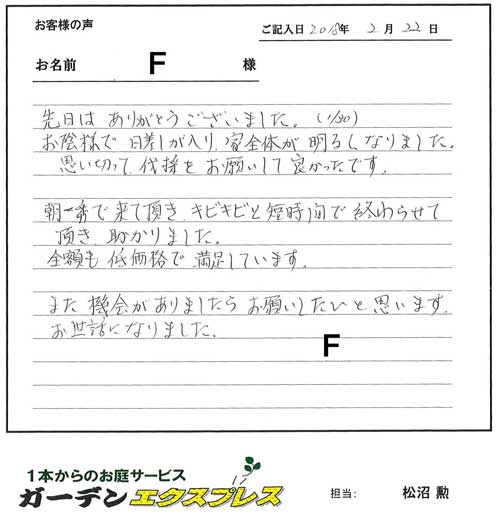 お客様の声
ご記入日 2018年 2月 22日
お名前 F 様
先日は ありがとうございました。(1/30)
お陰様で 日差しが入り、家全体が 明るくなりました。
思い切って、伐採を お願いして 良かったです。
朝一番で来て頂き、キビキビと 短時間で 終わらせて
頂き、助かりました。
金額も 低価格で 満足しています。
また 機会が ありましたら お願いしたいと 思います。
お世話になりました。
F
1本からのお庭サービス
ガーデンエクスプレス
担当: 松沼 勲